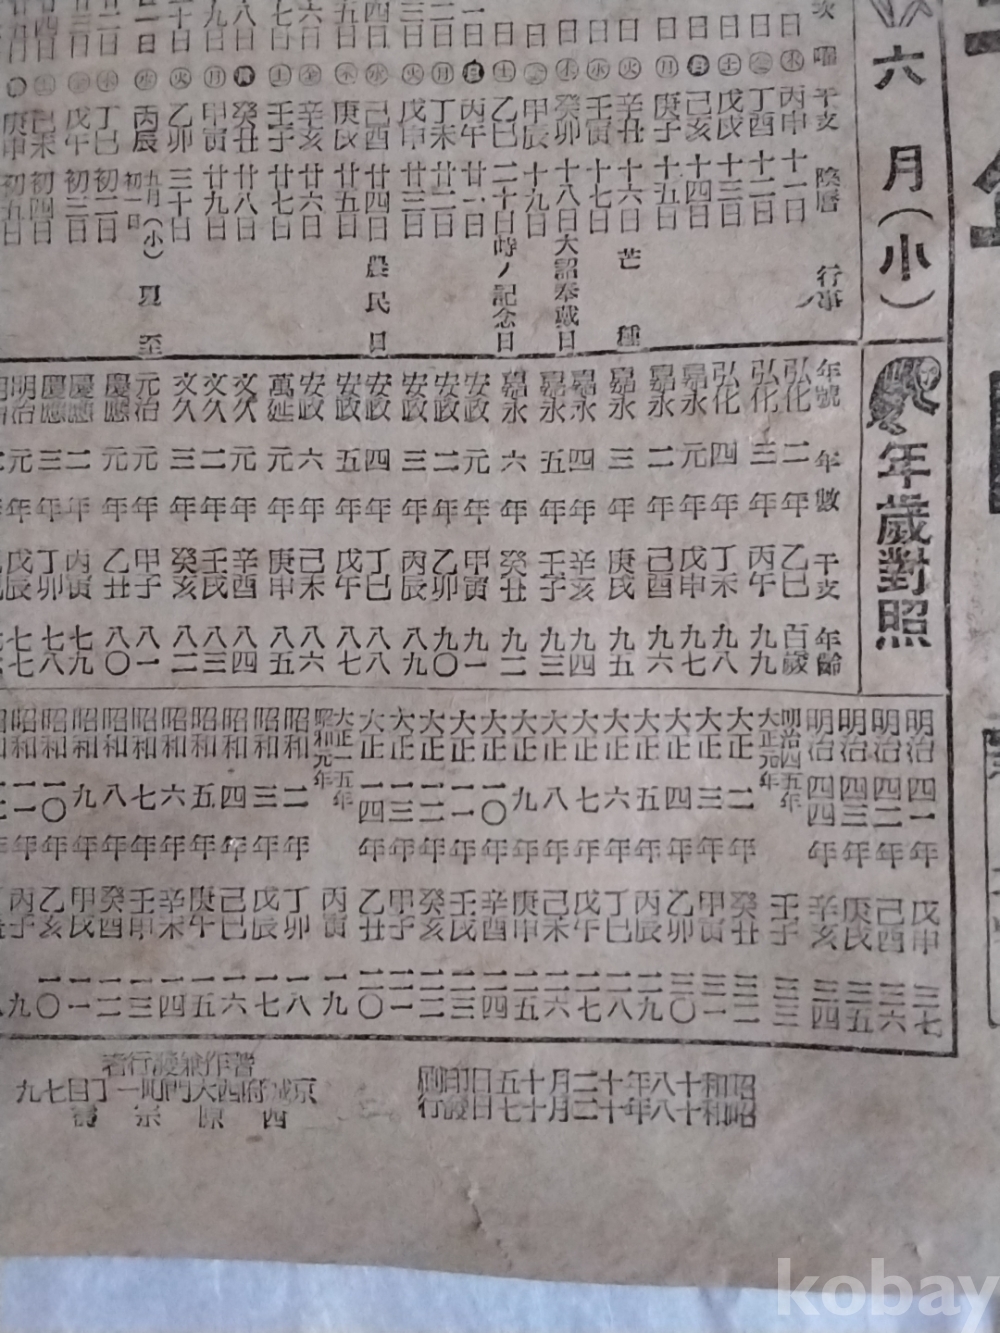 六月(小)
次 曜 干支 陰曆 行事
日 木 丙申 十一日
日 金 丁酉 十二日
日 土 戊戌 十三日
日 日 己亥 十四日
日 月 庚子 十五日
日 火 辛丑 十六日 芒種
日 水 壬寅 十七日
日 木 癸卯 十八日 大詔奉戴日
日 金 甲辰 十九日
日 土 乙巳 二十日 時ノ記念日
一日 日 丙午 廿一日
二日 月 丁未 廿二日
三日 火 戊申 廿三日
四日 水 己酉 廿四日 農民日
五日 木 庚戌 廿五日
六日 金 辛亥 廿六日
七日 土 壬子 廿七日
八日 日 癸丑 廿八日
九日 月 甲寅 廿九日
十日 火 乙卯 三十日
一日 水 丙辰 五月(小)初一日 夏至
廿二日 木 丁巳 初二日
廿三日 金 戊午 初三日
廿四日 土 己未 初四日
日 日 庚申 初五日
年歲對照
年號 年數 干支 年齡
弘化 二年 乙巳 百歲
弘化 三年 丙午 九九
弘化 四年 丁未 九八
嘉永 元年 戊申 九七
嘉永 二年 己酉 九六
嘉永 三年 庚戌 九五
嘉永 四年 辛亥 九四
嘉永 五年 壬子 九三
嘉永 六年 癸丑 九二
安政 元年 甲寅 九一
安政 二年 乙卯 九〇
安政 三年 丙辰 八九
安政 四年 丁巳 八八
安政 五年 戊午 八七
安政 六年 己未 八六
萬延 元年 庚申 八五
文久 元年 辛酉 八四
文久 二年 壬戌 八三
文久 三年 癸亥 八二
元治 元年 甲子 八一
慶應 元年 乙丑 八〇
慶應 二年 丙寅 七九
慶應 三年 丁卯 七八
明治 元年 戊辰 七七
明治 四一年 戊申 三七
明治 四二年 己酉 三六
明治 四三年 庚戌 三五
明治 四四年 辛亥 三四
明治四五年 大正元年 壬子 三三
大正 二年 癸丑 三二
大正 三年 甲寅 三一
大正 四年 乙卯 三〇
大正 五年 丙辰 二九
大正 六年 丁巳 二八
大正 七年 戊午 二七
大正 八年 己未 二六
大正 九年 庚申 二五
大正 一〇年 辛酉 二四
大正 一一年 壬戌 二三
大正 一二年 癸亥 二二
大正 一三年 甲子 二一
大正 一四年 乙丑 二〇
大正一五年 昭和元年 丙寅 一九
昭和 二年 丁卯 一八
昭和 三年 戊辰 一七
昭和 四年 己巳 一六
昭和 五年 庚午 一五
昭和 六年 辛未 一四
昭和 七年 壬申 一三
昭和 八年 癸酉 一二
昭和 九年 甲戌 一一
昭和 一〇年 乙亥 一〇
昭和 一一年 丙子 九
昭和十八年十二月十五日印刷
昭和十八年十二月十七日發行
著作兼發行者
京城府西大門町一丁目七九
西原宗
kobay